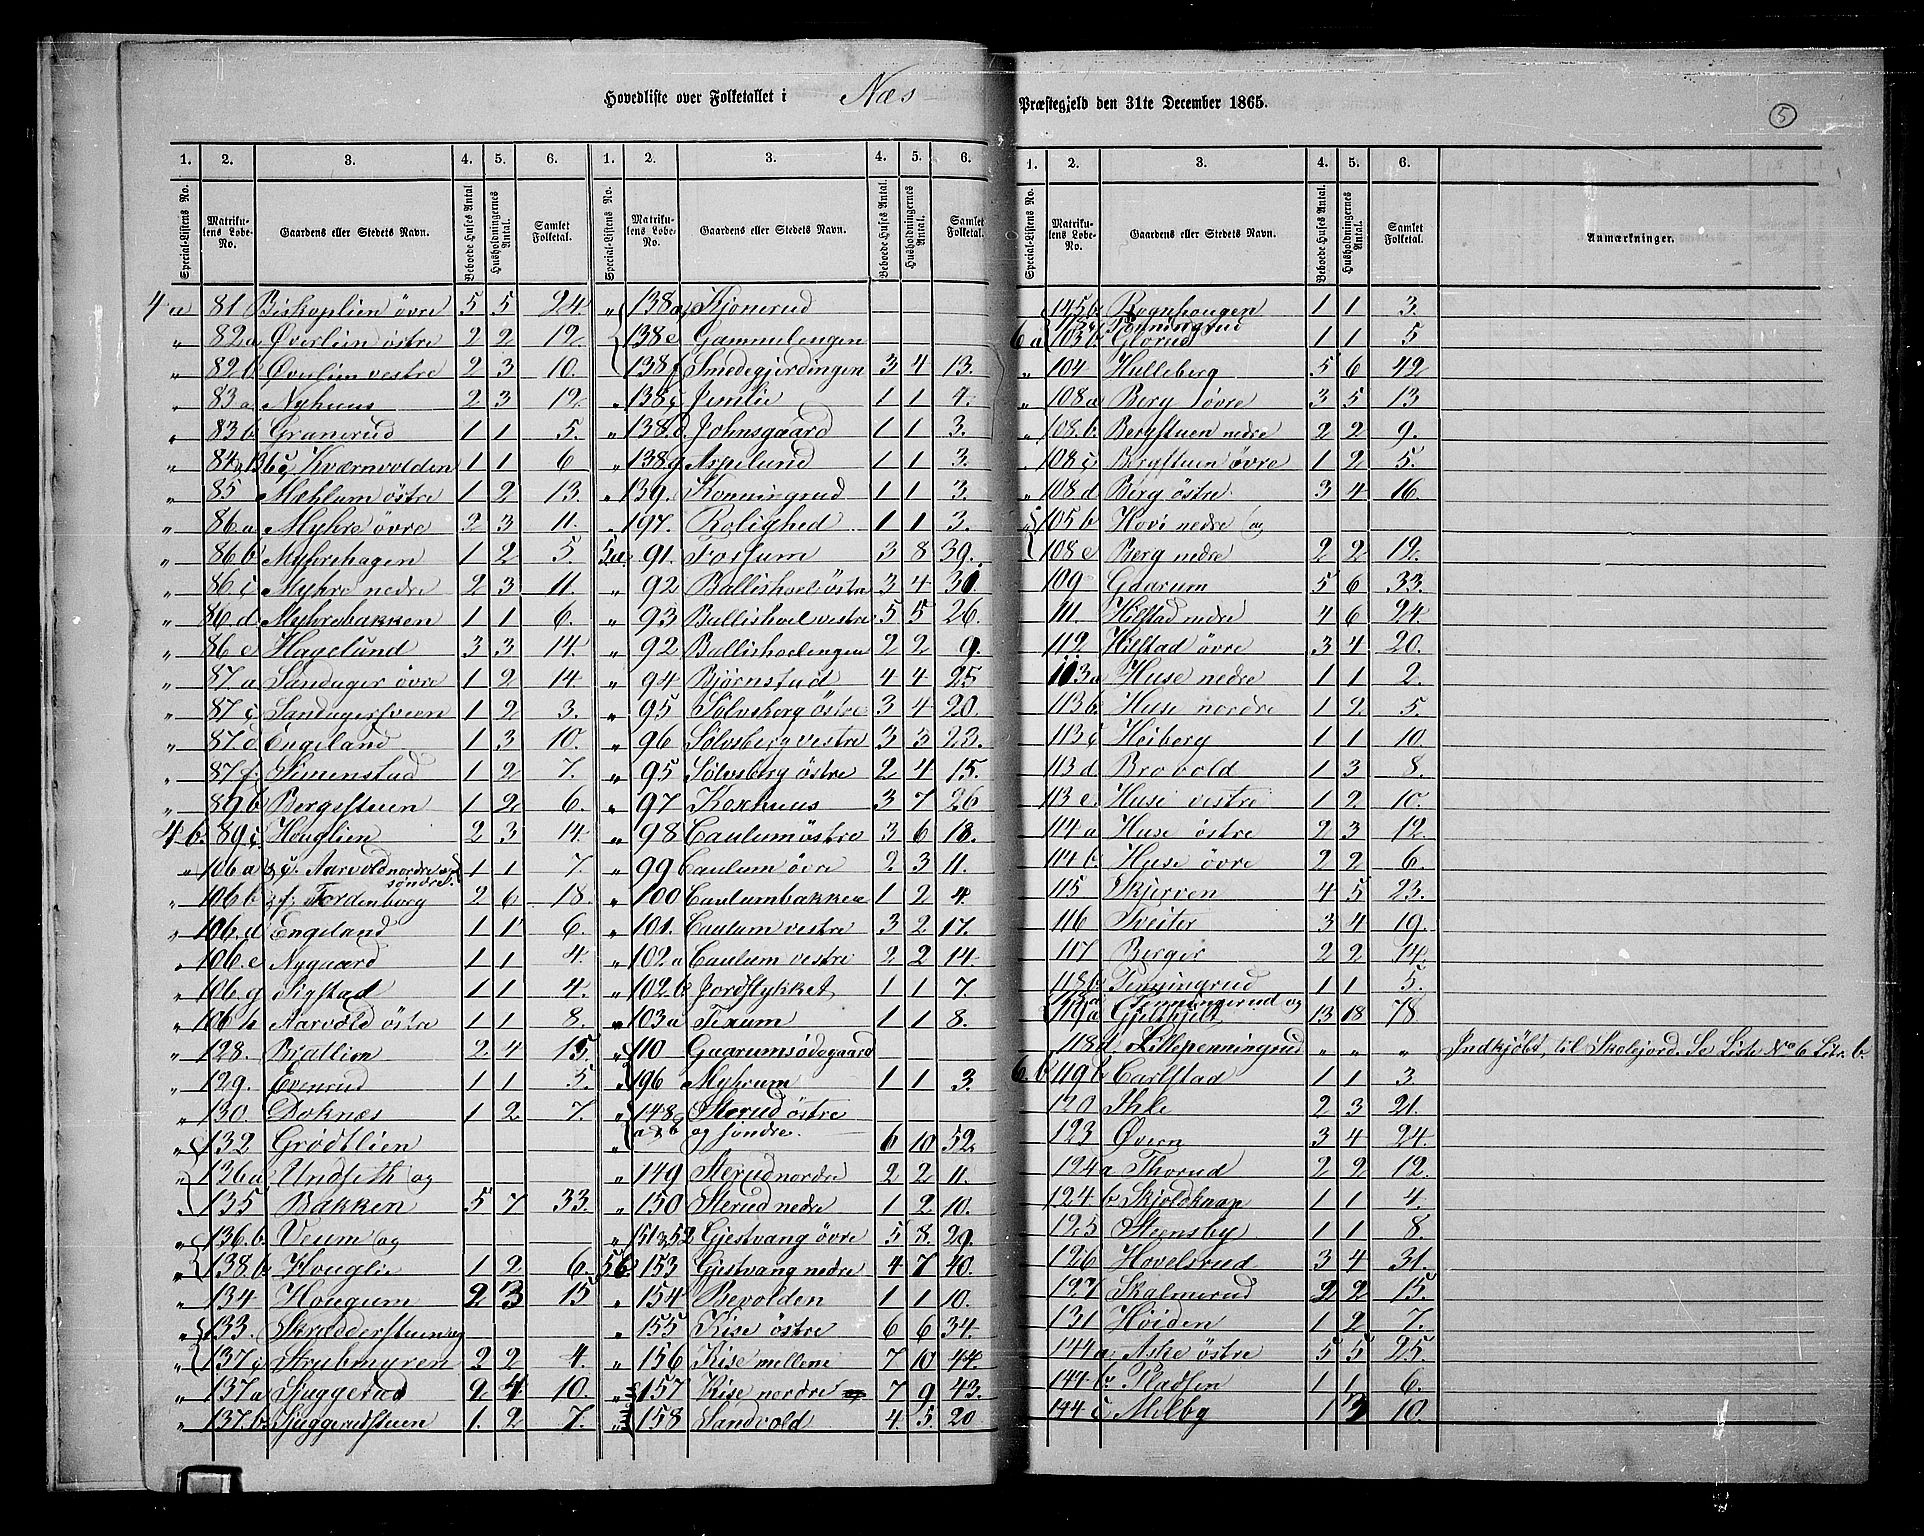 Hovedliste over Folketallet i Næs Præstegjeld den 31te December 1865.
5
1. 2. 3. 4. 5. 6. 1. 2. 3. 4. 5. 6. 1. 2. 3. 4. 5. 6.
Special-Listens No. Matrikulens Løbe-No. Gaardens eller Stedets Navn. Beboede Huses Antal Husholdningernes Antal. Samlet Folketal.
Special-Listens No. Matrikulens Løbe-No. Gaardens eller Stedets Navn. Beboede Huses Antal Husholdningernes Antal. Samlet Folketal.
Special-Listens No. Matrikulens Løbe-No. Gaardens eller Stedets Navn. Beboede Huses Antal. Husholdningernes Antal. Samlet Folketal. Anmærkninger.
4 a 81 Biskoplien övre 5 5 24.
„ 82a Øverlien östre 2 2 12.
„ 82b Øverlien vestre 2 3 10.
„ 83a Nyhuus 2 3 12.
„ 83b Granerud 1 1 5.
„ 84 & 136c Kværnvolden 1 1 6
„ 85 Mæhlum östre 1 2 13.
„ 86a Myhre övre 2 3 11.
„ 86b Myhrehagen 1 2 5.
„ 86c Myhre nedre 2 3 11.
„ 86d Myhrebakken 1 1 6.
„ 86e Hagelund 3 3 14.
„ 87a Sandager övre 1 2 14
„ 87c Sandagersveen 1 2 3.
„ 87d Engeland 1 3 10.
„ 87f Simenstad 1 2 7.
„ 89b Bergstuen 1 2 6.
4 b. 89c Houglien 2 3 14.
„ 106a & c. Aarvold nordre og søndre. 1 1 7.
„ 106b & f. Fordenborg 2 6 18.
„ 106.d Engeland 1 1 6.
„ 106.e Nygaard 1 1 4
„ 106.g Sigstad 1 1 4.
„ 106h Aarvold östre 1 1 8.
„ 128. Brattlien 2 4 15.
„ 129. Evenrud 1 1 5.
„ 130. Doknæs 1 2 7.
„ 132 Grödtlien
„ 136a Undseth og
135 Bakken 5 7 33.
„ 136.b Veum og
138.b Houglie 1 2 6.
„ 134 Hougum 2 3 15
„ 133. Skrædderstuen og
137c Strubmyren 2 2 4.
„ 137a Skuggerud 2 4 10.
„ 137.b Skuggerudstuen 1. 2 7.
„ 138a Kjonerud
138e Gammelengen
138f Smedegjerdingen 3 4 13.
„ 138c Jemlie 1 1 4.
„ 138.d Johnsgaard 1 1 3.
„ 138g Aspelund 1 1 3.
„ 139. Konningrud 1 1 3.
„ 197. Rolighed 1 1 3.
5a 91. Fossum 3 8 39.
„ 92 Ballishoel östre 3 4 31
„ 93 Ballishoel vestre 5 5 26.
„ 92 Ballishoelengen 2 2 9.
„ 94 Björnstad 4 4 25
„ 95 Sölvsberg östre 3 4 20.
„ 96 Sölvsberg vestre 3 3 23.
„ 95 Sölvsberg östre 2 4 15.
„ 97 Korhuus 3 7 26
„ 98 Caulum östre 3 6 18.
„ 99 Caulum övre 2 3 11.
„ 100 Caulumbakken 1 2 4.
„ 101. Caulum vestre 3 2 17.
„ 102a Caulum vestre 2 2 14
„ 102b Jordstykket 1 1 7.
„ 103a Texum 1 1 8.
110 Gaarumsödegaard
196 Myhrum 1 1 3.
„ 148 a & b Sterud östre og söndre. 6 10 52
„ 149 Sterud nordre 2 2 11.
„ 150 Sterud nedre 1 2 10.
„ 151 & 52 Gjestvang övre 5 8. 29.
5b. 153 Gjestvang nedre 4 7 40.
„ 154 Bevolden 1 1 10.
„ 155 Kise östre 6 6 34.
„ 156 Kise mellene 7 10 44.
„ 157 Kise nordre 7 9 43.
„ 158 Sandvold 4. 5. 20
145b Rognhougen 1 1 3.
6a 103b Glorud 1 1 5
„ 104 Hulleberg 5 6 42
„ 108a Berg övre 3 5 13
„ 108.b. Bergstuen nedre 2 2 9.
„ 108c Bergstuen övre 1 2 5.
„ 108d Berg östre 3 4 16
105b Hovi nedre og
108e Berg nedre 2 2 12.
109 Gaarum 5 6 33.
111. Kilstad nedre 4 6 24.
112 Kilstad övre 3 4 20.
113a Huse nedre 1 1 2.
113b. Huse nordre 1 2 5.
113c Heiberg 1 1 10
113d Brovold 1 3 8.
113e. Huse vestre 1 2 10.
114a Huse östre 2 3 12
114b. Huse övre 2 2 6.
115 Skjerven 4 5 23.
116 Tveiter 3 4 19.
117 Berger 2 2 14.
118b Penningrud 1 1 5.
118a Penningerud og
119a Gjelthuk 13 18 78
118d Lillepenningrud „ „ „ Indkjöbt til Skolejord. Se Liste No 6 Litr. b.
6.b 119b Carlstad 1 1 3.
120 Ihle 2 3 21.
123 Övern 3 4 24.
124a Thorud 2 2 12.
124b Skjoldknap 1 1 4.
125 Steensby 1 1 8.
126 Hovelsrud 3 4 31.
127 Skalmerud 2 2 15.
131 Höiden 1 2 7.
144a Aske östre 5 5 25.
144b Pladsen 1 1 6.
144c Melby 1 3 10.